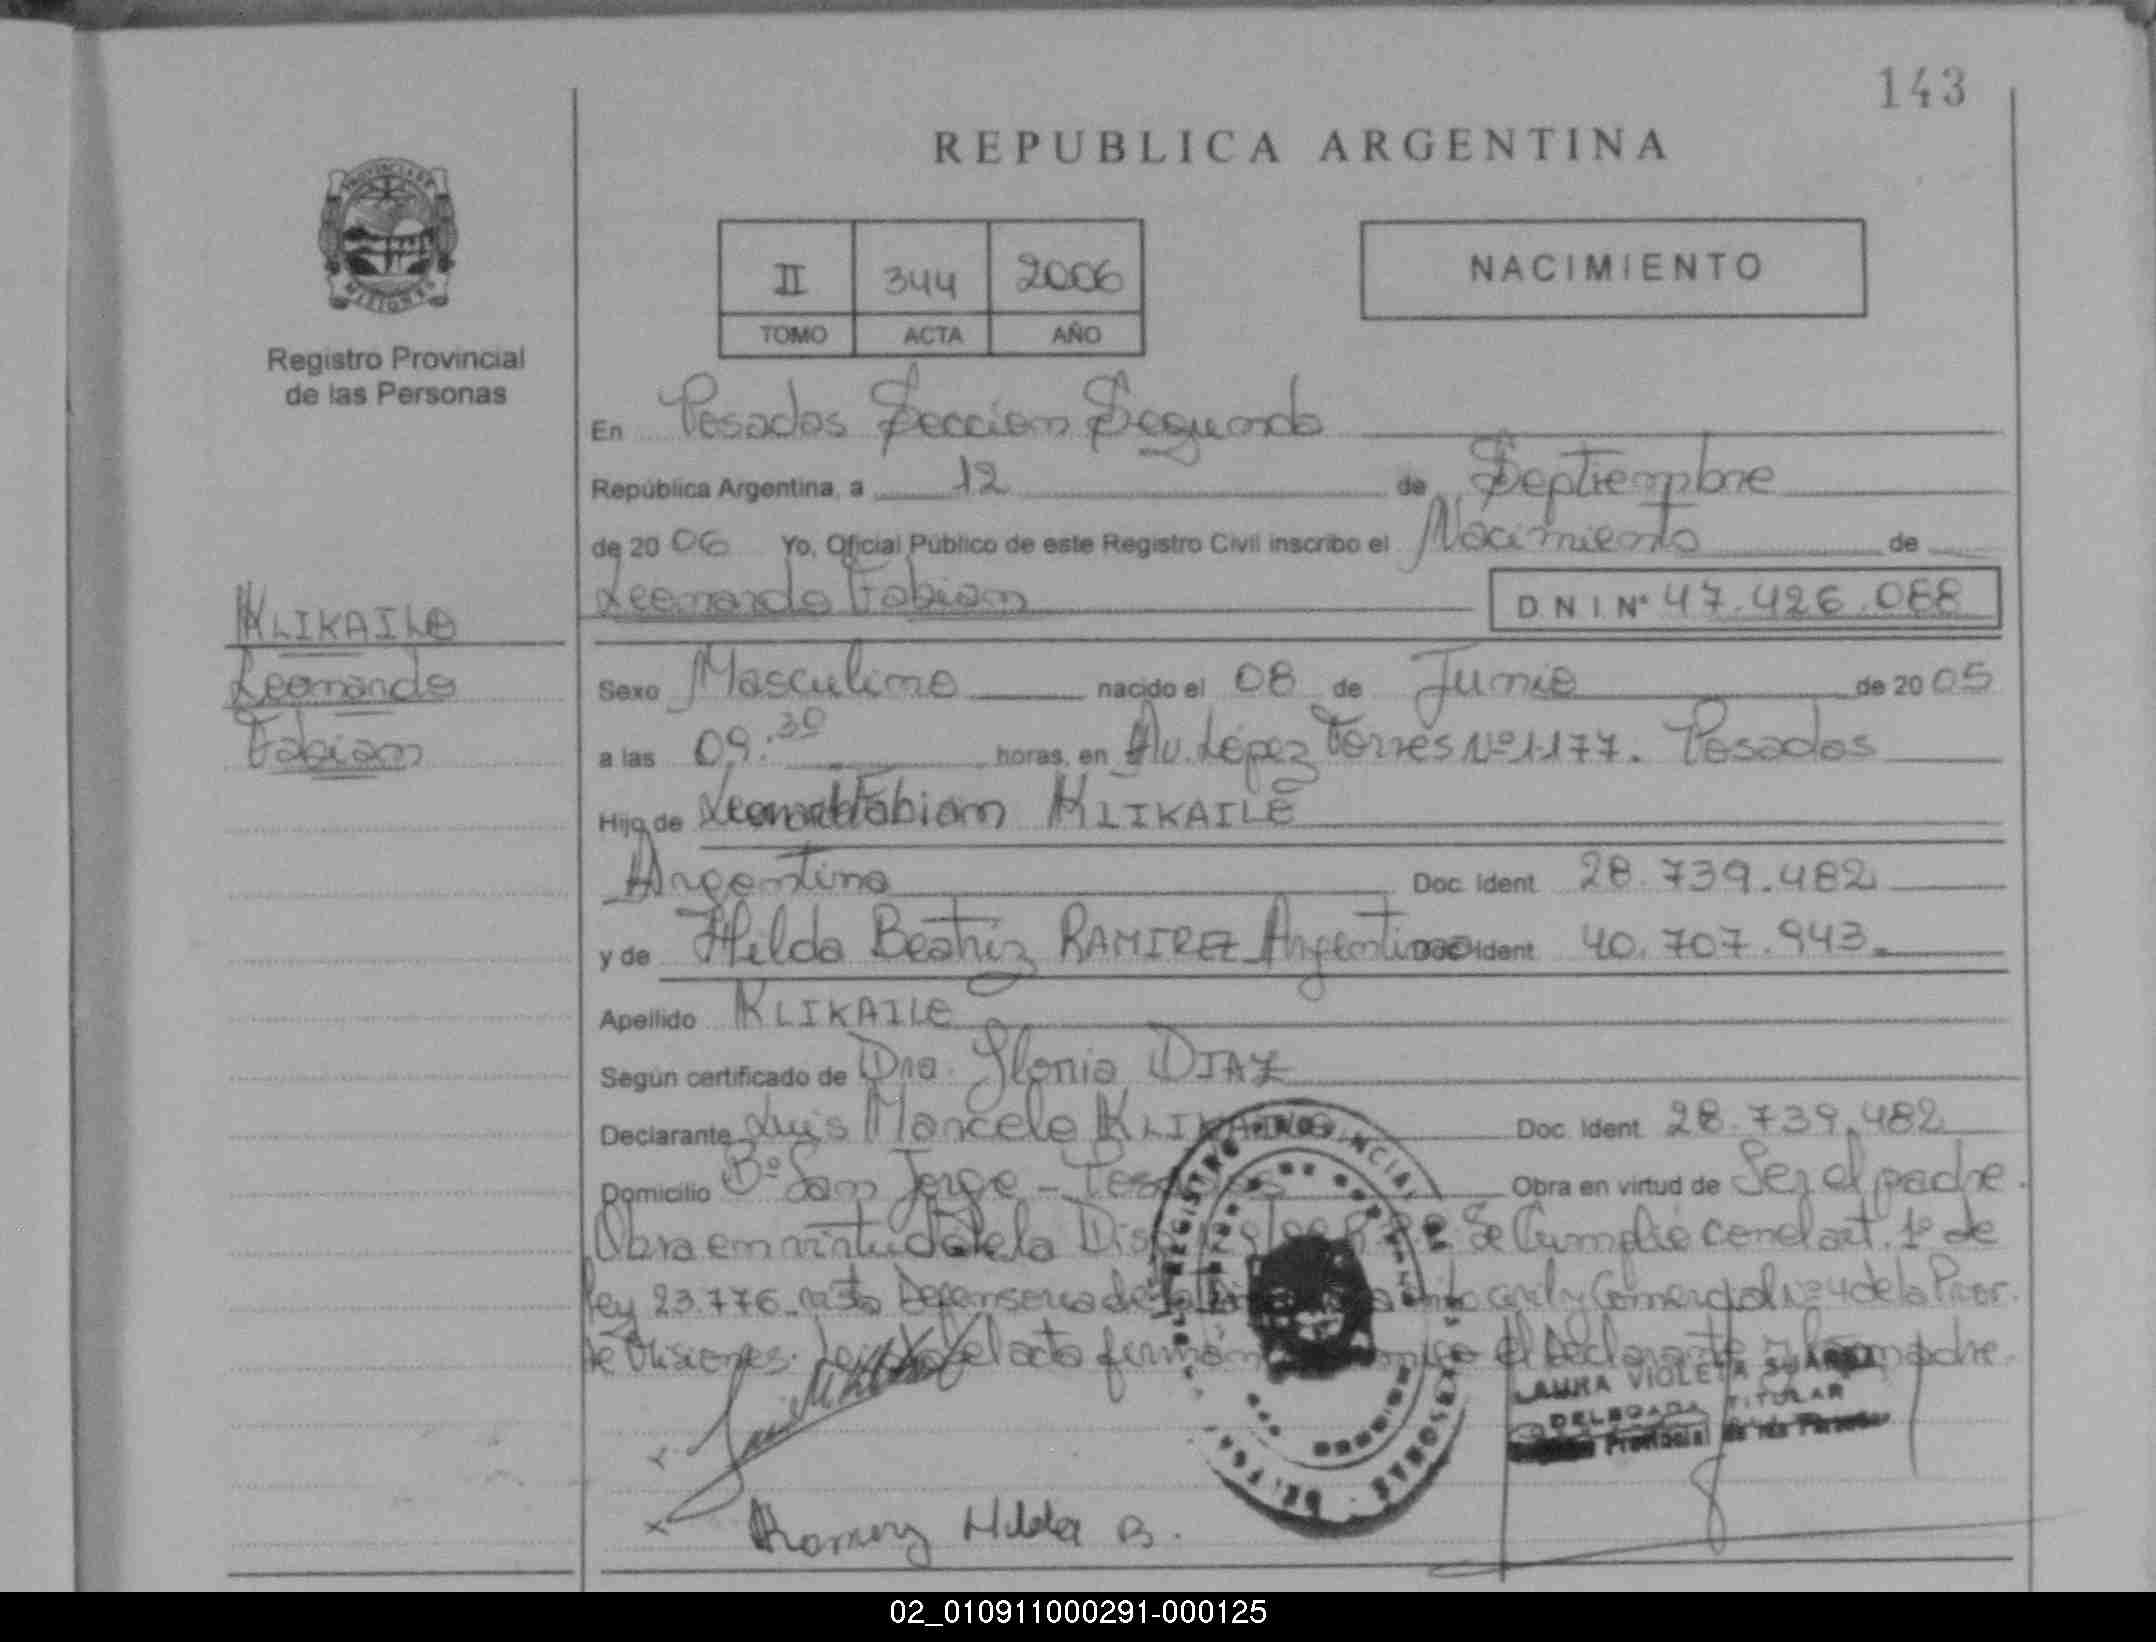 143
REPUBLICA ARGENTINA
PROVINCIA DE
MISIONES
Registro Provincial
de las Personas
II 344 2006
TOMO ACTA AÑO
NACIMIENTO
En Posadas Sección Segunda
República Argentina, a 12 de Septiembre
de 2006 Yo, Oficial Público de este Registro Civil inscribo el Nacimiento de
Leonardo Fabian
D N I Nº 47.426.088
KLIKAILO
Leonardo
Fabian
Sexo Masculino nacido el 08 de Junio de 2005
a las 09:30 horas, en Av. López Torres Nº 1177. Posadas
Hijo de Fabian KLIKAILE
Argentina Doc. Ident 28.739.482
y de Hilda Beatriz RAMIREZ Argentina Doc Ident 40.707.943.
Apellido KLIKAILE
Según certificado de Dra. Gloria DIAZ
Declarante Luis Marcelo Doc. Ident 28.739.482
Domicilio Bº San Jorge - Posadas Obra en virtud de Ser el padre.
Obra en virtud de la Se Cumplió con el art. 1º de
ley 23.776 Defensoria de Civil y Comercial nº 4 de la Prov.
de Misiones. el acta firman el Declarante y la madre.
REGISTRO PROVINCIAL DE LAS PERSONAS
LAURA VIOLETA SUAREZ
DELEGADA TITULAR
Provincial de las Personas
x
x Ramirez Hilda B.
02_010911000291-000125